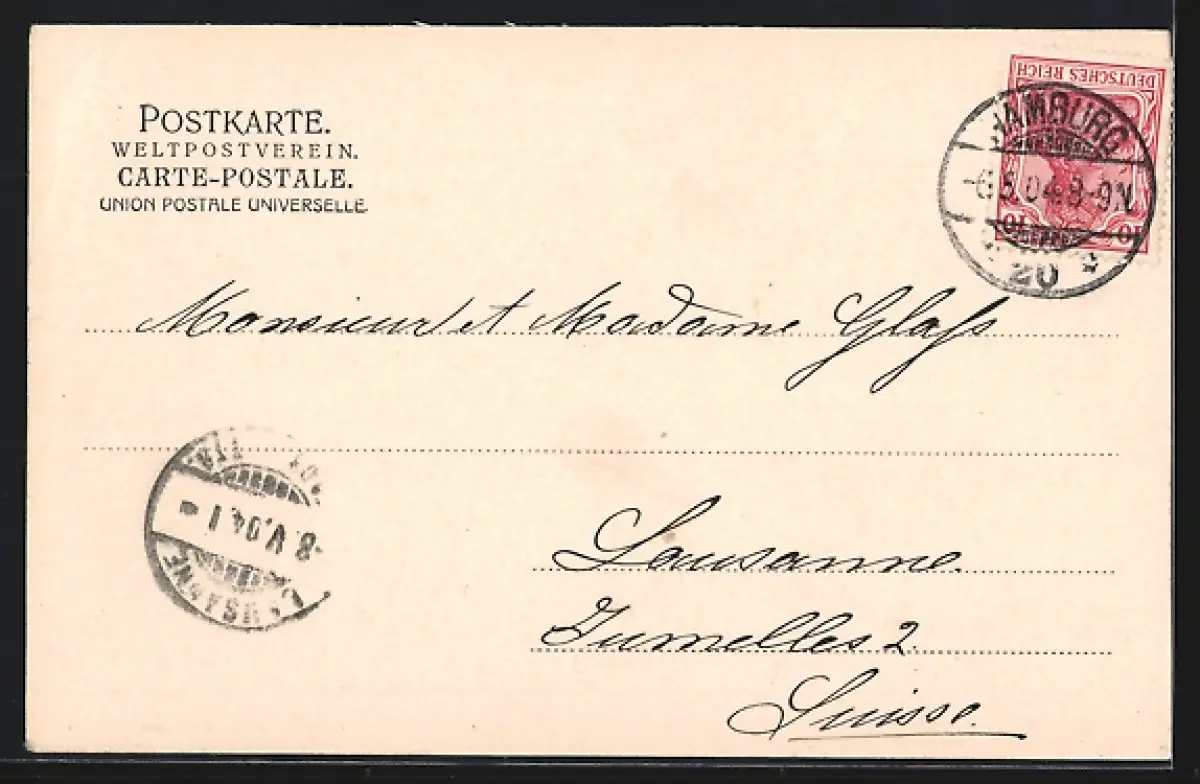 POSTKARTE.
WELTPOSTVEREIN.
CARTE-POSTALE.
UNION POSTALE UNIVERSELLE.
DEUTSCHES REICH
10 10
HAMBURG
-6.5.04.8-9N.
20
Monsieur et Madame Glaß
Lausanne.
Jumelles 2.
Suisse.
-8.V.04.